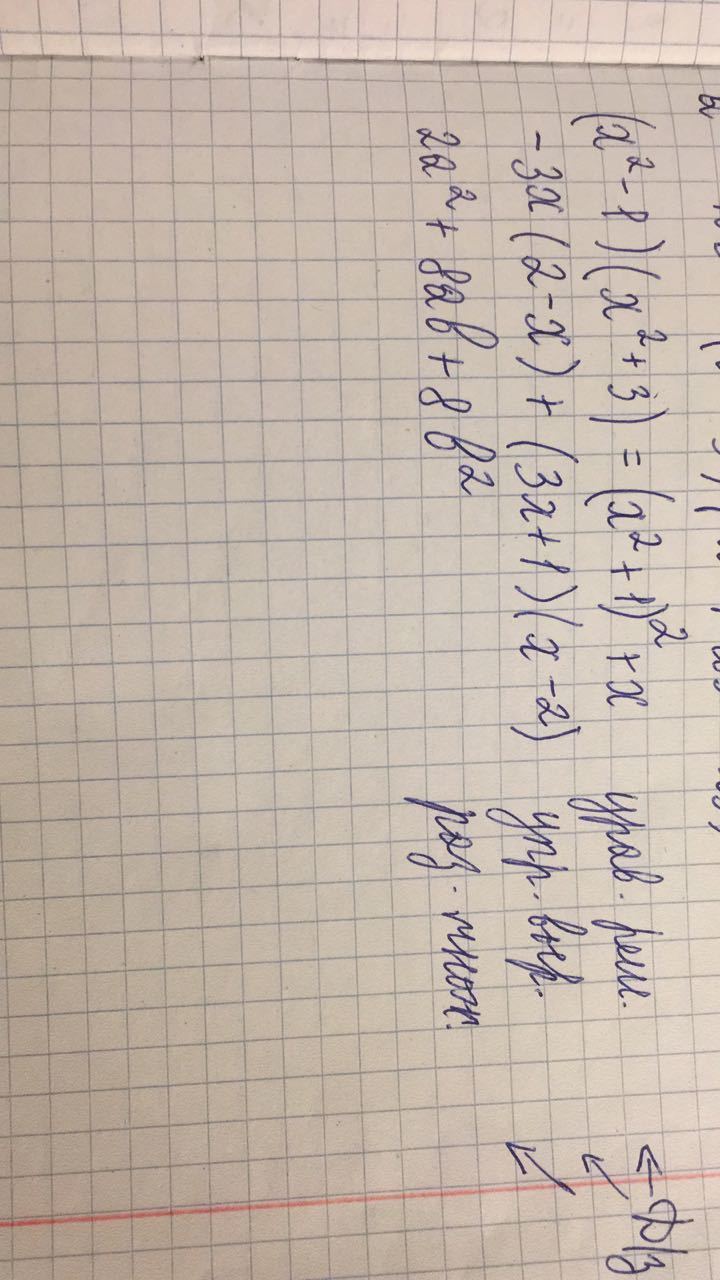 (x² - 1)(x² + 3) = (x² + 1)² + x урав. реш. ← Д/з
- 3x (2 - x) + (3x + 1)(x - 2) упр. выр. ↙
2a² + 8ab + 8b² раз. множ. ↙